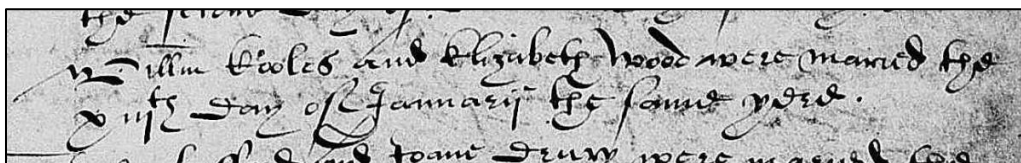 the day of
Willm and Elizabeth Wood were maried the
xiijth day of Januarij the same yere.
and Joane Drury were maryed the